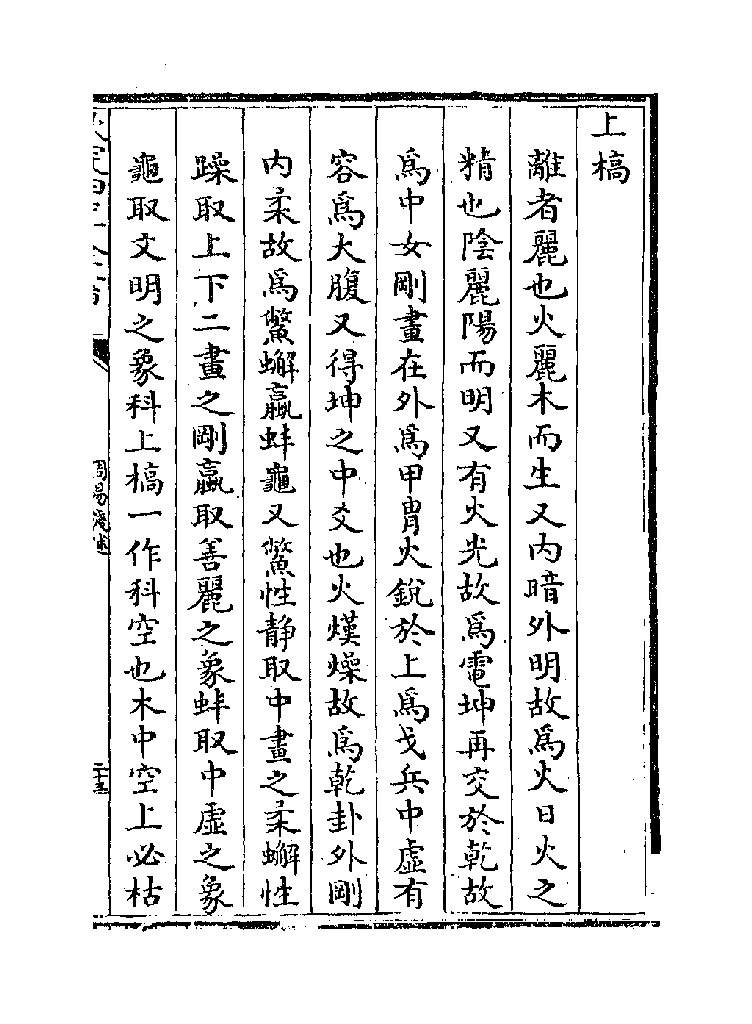 上槁
離者麗也火麗木而生又内暗外明故為火日火之
精也陰麗陽而明又有火光故為電坤再交於乾故
為中女剛畫在外為甲胄火銳於上為戈兵中虛有
容為大腹又得坤之中爻也火熯燥故為乾卦外剛
内柔故為鱉蠏蠃蚌龜又鱉性静取中畫之柔蠏性
躁取上下二畫之剛蠃取善麗之象蚌取中虛之象
龜取文明之象科上槁一作科空也木中空上必枯
周易淺述
二十五